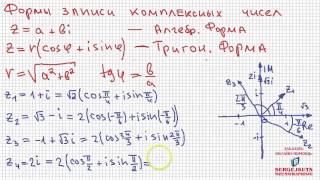 Формы записи комплексных чисел
z = a + bi — Алгебр. Форма
z = r(cosφ + i sinφ) — Тригон. Форма
r = √(a² + b²) tgφ = b/a
z₁ = 1 + i = √2(cos π/4 + i sin π/4)
z₂ = √3 − i = 2(cos(−π/6) + i sin(−π/6))
z₃ = −1 + √3i = 2(cos 2π/3 + i sin 2π/3)
z₄ = 2i = 2(cos π/2 + i sin π/2) =
Im
z₃
2π/3
π/4
√3
-1
Re
-i
z₂
SERGEJBUTS